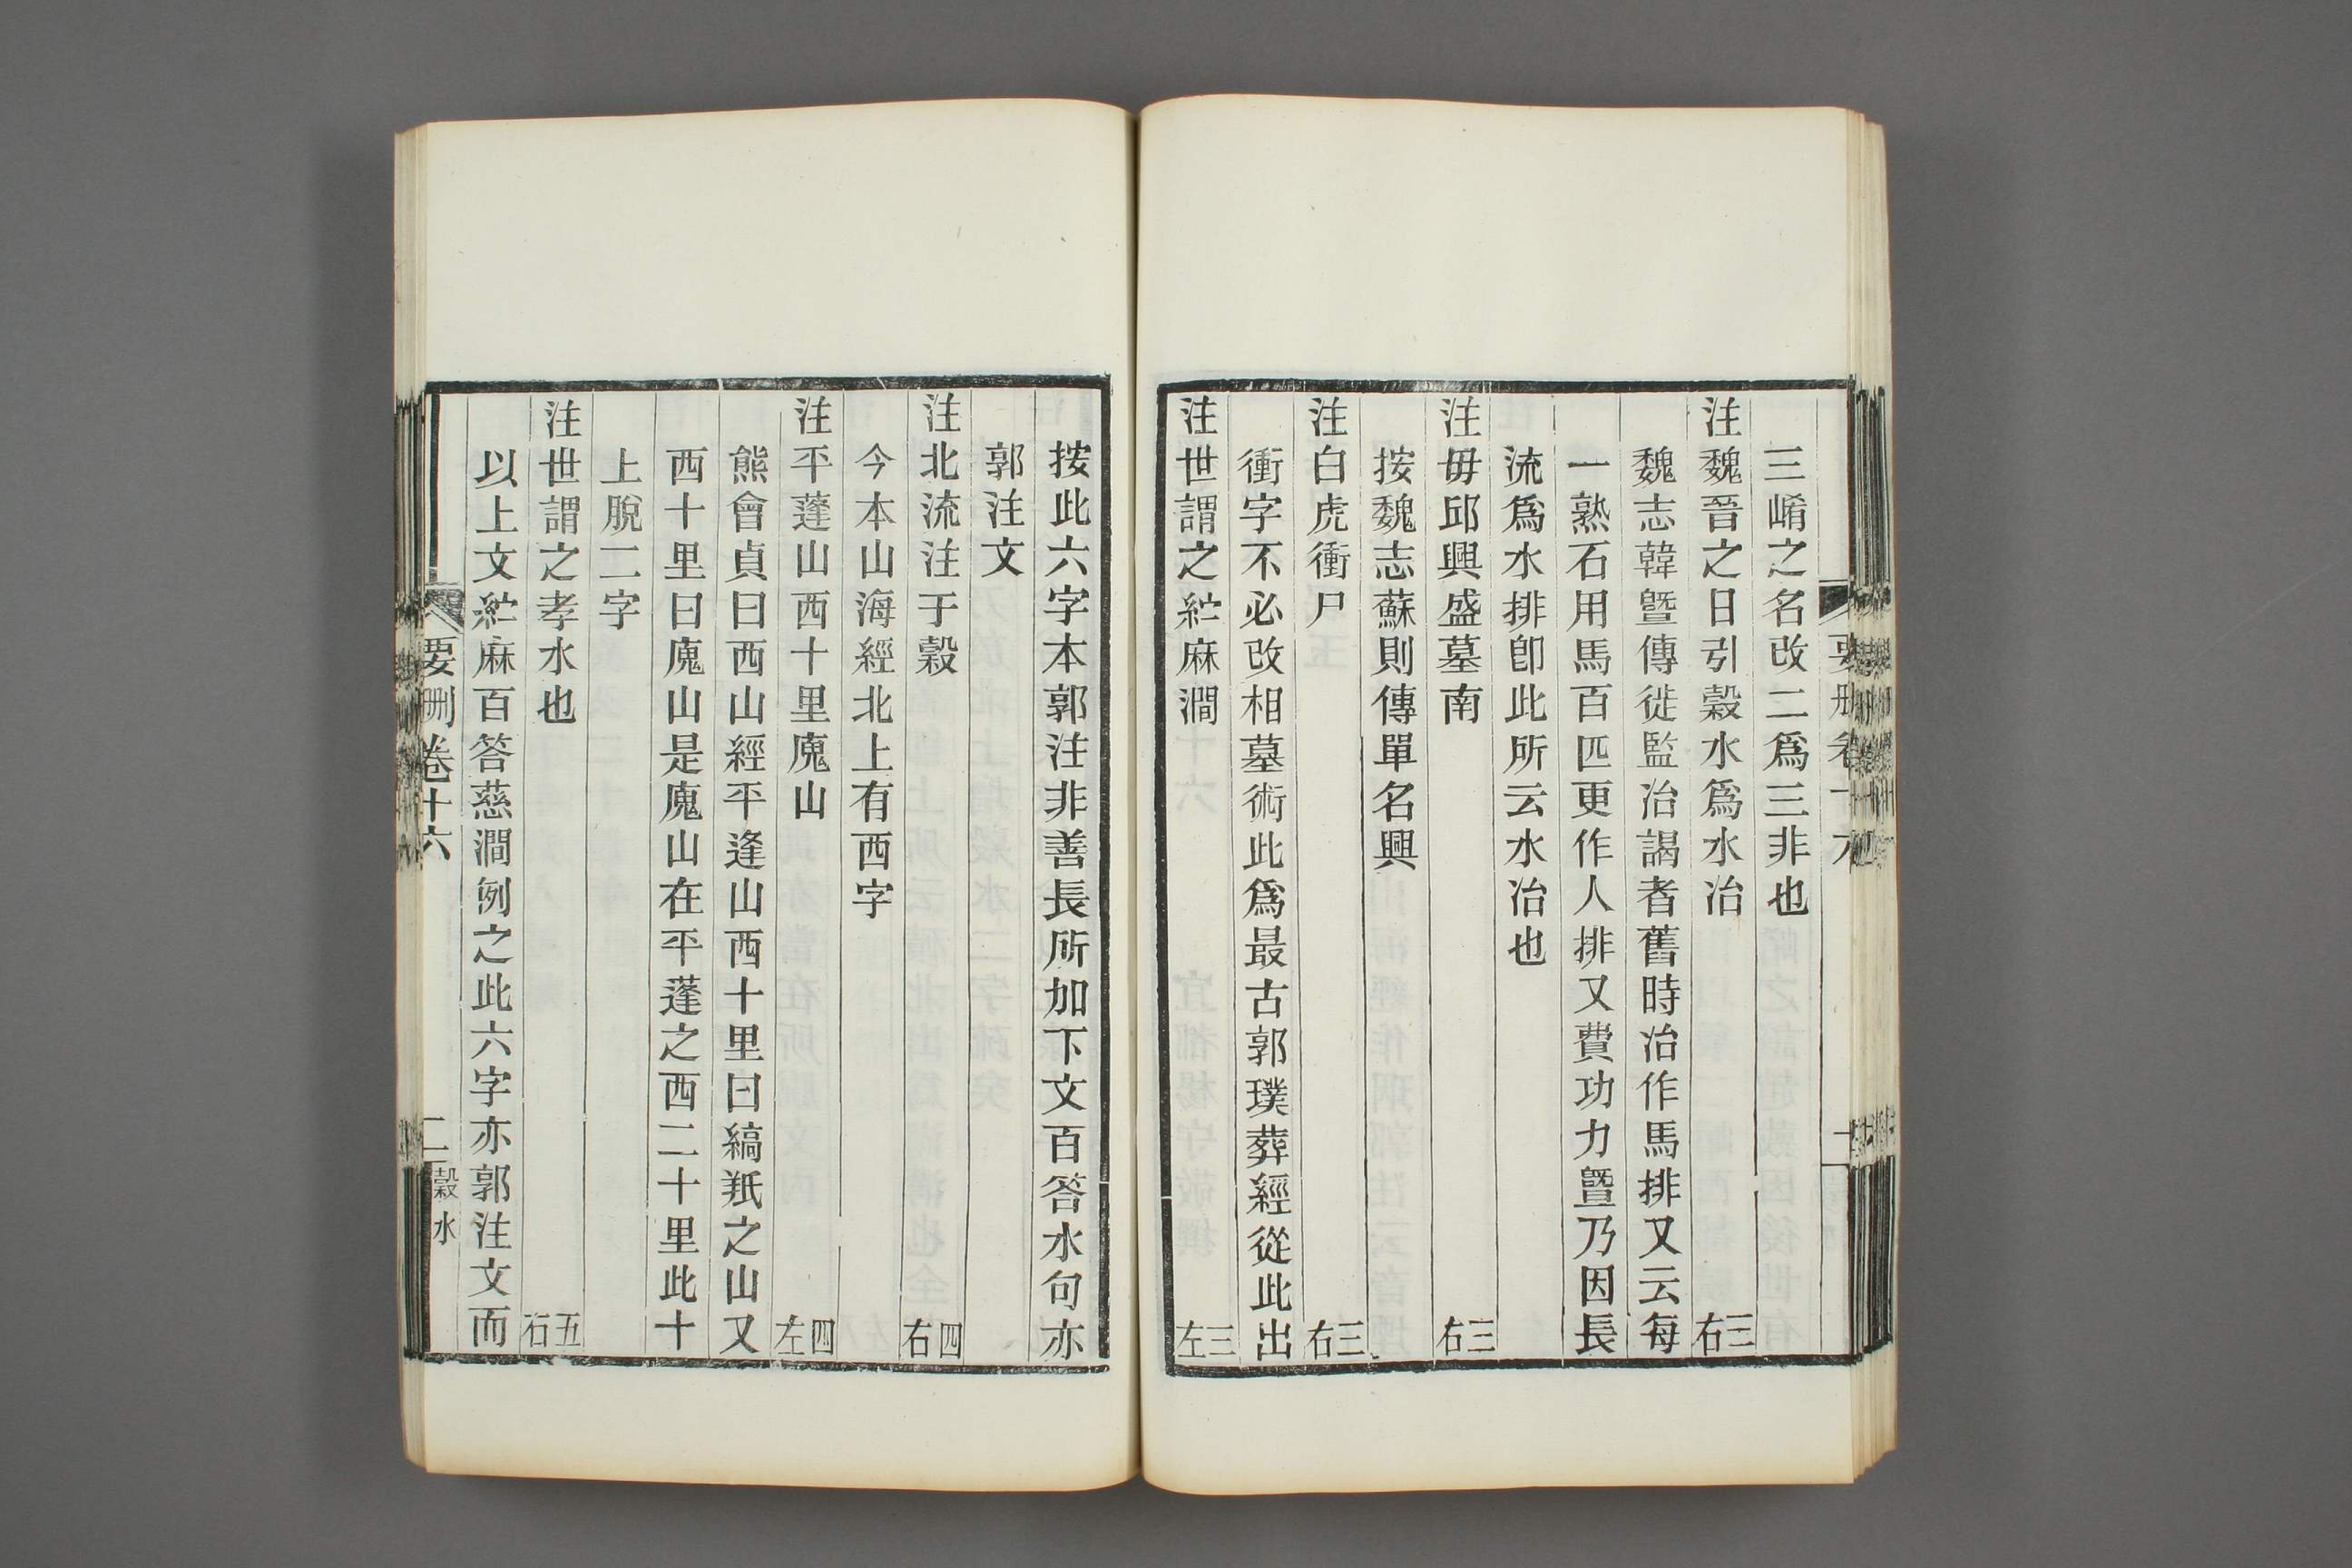 三崤之名改二爲三非也
注魏晉之日引穀水爲水冶　三右
魏志韓曁傳徙監冶謁者舊時冶作馬排又云每
一熟石用馬百匹更作人排又費功力曁乃因長
流爲水排卽此所云水冶也
注毋邱興盛墓南　三右
按魏志蘇則傳單名興
注白虎衝尸　三右
衝字不必改相墓術此爲最古郭璞葬經從此出
注世謂之紵麻澗　三左
按此六字本郭注非善長所加下文百答水句亦
郭注文
注北流注于穀　四右
今本山海經北上有西字
注平蓬山西十里廆山　四左
熊會貞曰西山經平逢山西十里曰縞羝之山又
西十里曰廆山是廆山在平蓬之西二十里此十
上脫二字
注世謂之孝水也　五右
以上文紵麻百答慈澗例之此六字亦郭注文而
要刪卷十六　二　穀水